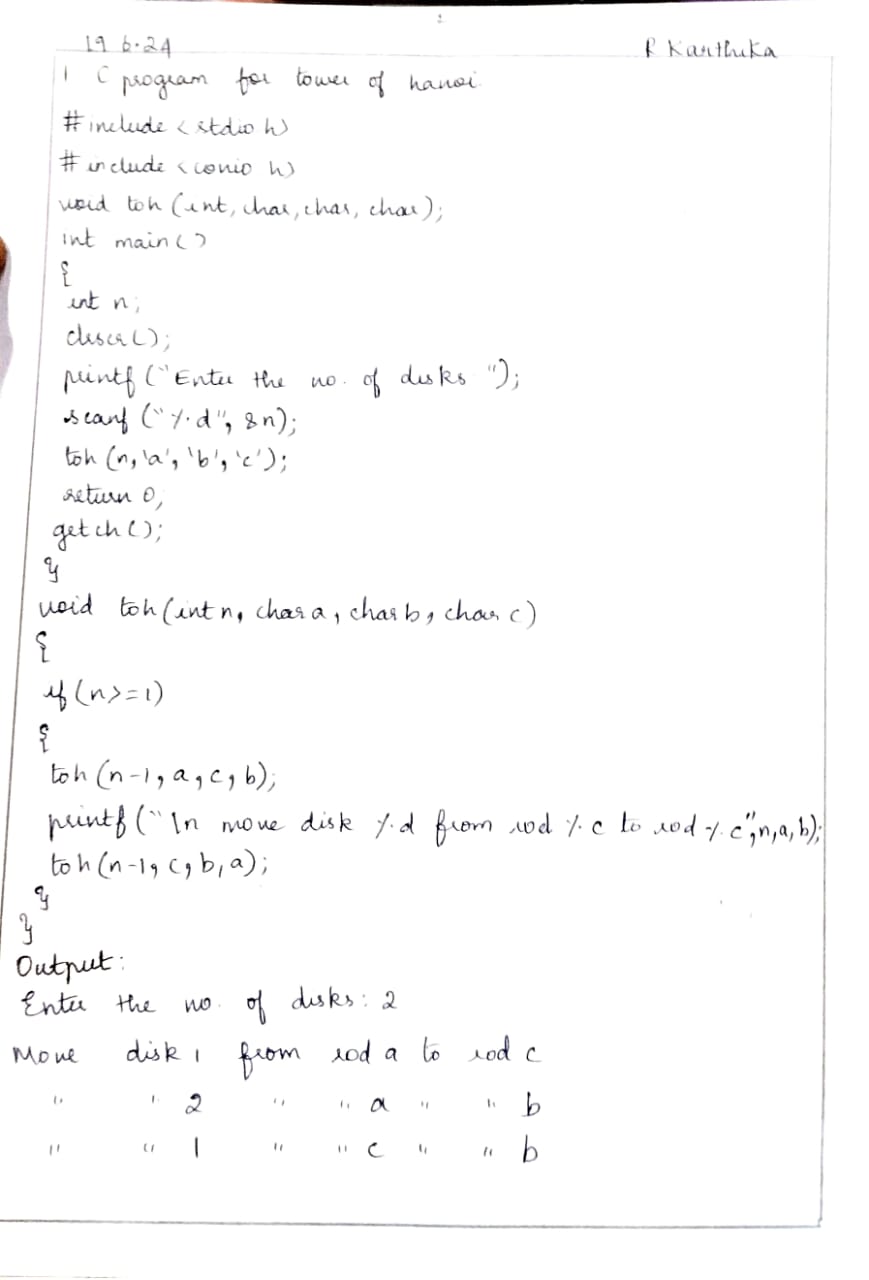 19 6.24
R Karthika
1 C program for tower of hanoi
#include <stdio h>
#include <conio h>
void toh (int, char, char, char);
int main()
{
int n;
clrscr();
printf ("Enter the no. of disks ");
scanf ("%d", &n);
toh (n, 'a', 'b', 'c');
return 0;
getch();
}
void toh (int n, char a, char b, char c)
{
if (n>=1)
{
toh (n-1, a, c, b);
printf ("\n move disk %d from rod %c to rod %c", n, a, b);
toh (n-1, c, b, a);
}
}
Output:
Enter the no. of disks: 2
Move disk 1 from rod a to rod c
" " 2 " " a " " b
" " 1 " " c " " b